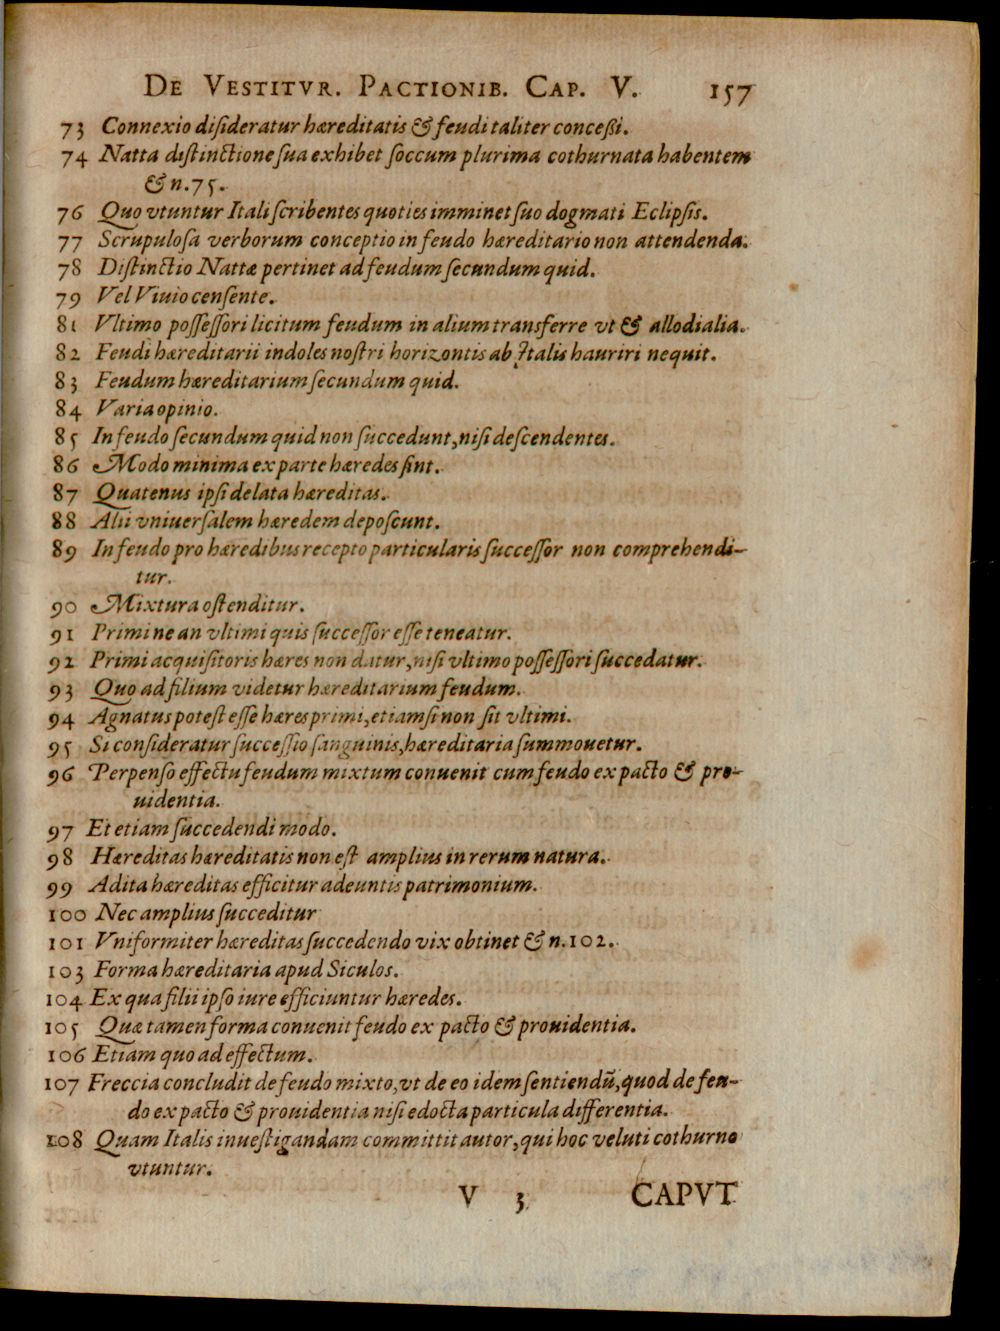 DE VESTITVR. PACTIONIB. CAP. V. 157
73 Connexio disideratur hæreditatis & feudi taliter conceßi.
74 Natta distinctione sua exhibet soccum plurima cothurnata habentem
& n.75.
76 Quo vtuntur Itali scribentes quoties imminet suo dogmati Eclipsis.
77 Scrupulosa verborum conceptio in feudo hæreditario non attendenda.
78 Distinctio Nattæ pertinet ad feudum secundum quid.
79 Vel Viuio censente.
81 Vltimo possessori licitum feudum in alium transferre vt & allodialia.
82 Feudi hæreditarii indoles nostri horizontis ab Italis hauriri nequit.
83 Feudum hæreditarium secundum quid.
84 Varia opinio.
85 In feudo secundum quid non succedunt, nisi descendentes.
86 Modo minima ex parte hæredes sint.
87 Quatenus ipsi delata hæreditas.
88 Alii vniuersalem hæredem deposcunt.
89 In feudo pro hæredibus recepto particularis successor non comprehendi-
tur.
90 Mixtura ostenditur.
91 Primi ne an vltimi quis successor esse teneatur.
92 Primi acquisitoris hæres non datur, nisi vltimo possessori succedatur.
93 Quo ad filium videtur hæreditarium feudum.
94 Agnatus potest esse hæres primi, etiamsi non sit vltimi.
95 Si consideratur successio sanguinis, hæreditaria summouetur.
96 Perpenso effectu feudum mixtum conuenit cum feudo ex pacto & pro-
uidentia.
97 Et etiam succedendi modo.
98 Hæreditas hæreditatis non est amplius in rerum natura.
99 Adita hæreditas efficitur adeuntis patrimonium.
100 Nec amplius succeditur
101 Vniformiter hæreditas succedendo vix obtinet & n.102.
103 Forma hæreditaria apud Siculos.
104 Ex qua filii ipso iure efficiuntur hæredes.
105 Quæ tamen forma conuenit feudo ex pacto & prouidentia.
106 Etiam quo ad effectum.
107 Freccia concludit de feudo mixto, vt de eo idem sentiendũ, quod de feu-
do ex pacto & prouidentia nisi edocta particula differentia.
108 Quam Italis inuestigandam committit autor, qui hoc veluti cothurno
vtuntur.
V 3 CAPVT